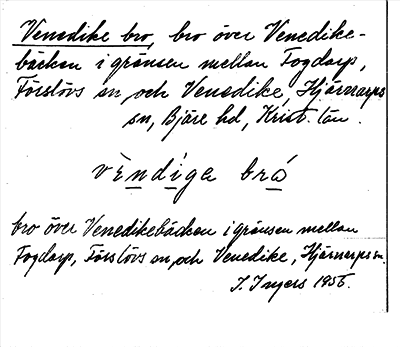 Venedike bro, bro över Venedike-
bäcken i gränsen mellan Fogdarp,
Förslövs sn, och Venedike, Hjärnarps
sn, Bjäre hd, Krist. län.
vèndíga brá
bro över Venedikebäcken i gränsen mellan
Fogdarp, Förslövs sn, och Venedike, Hjärnarps sn.
I. Ingers 1956.